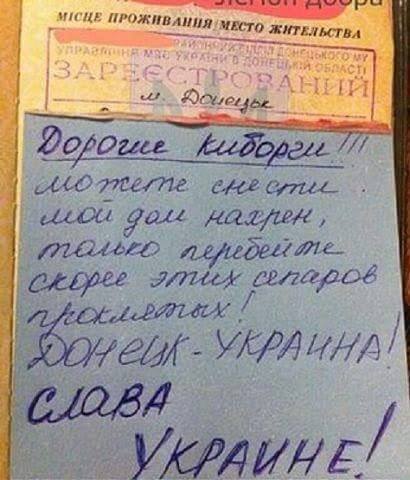 МІСЦЕ ПРОЖИВАННЯ/МЕСТО ЖИТЕЛЬСТВА
РАЙОННИЙ ВІДДІЛ ДОНЕЦЬКОГО МУ
УПРАВЛІННЯ МВС УКРАЇНИ В ДОНЕЦЬКІЙ ОБЛАСТІ
ЗАРЕЄСТРОВАНИЙ
м. Донецьк
Дорогие киборги!!!
можете снести
мой дом нахрен,
только перебейте
скорее этих сепаров
проклятых!
ДОНЕЦК - УКРАИНА!
СЛАВА
УКРАИНЕ!